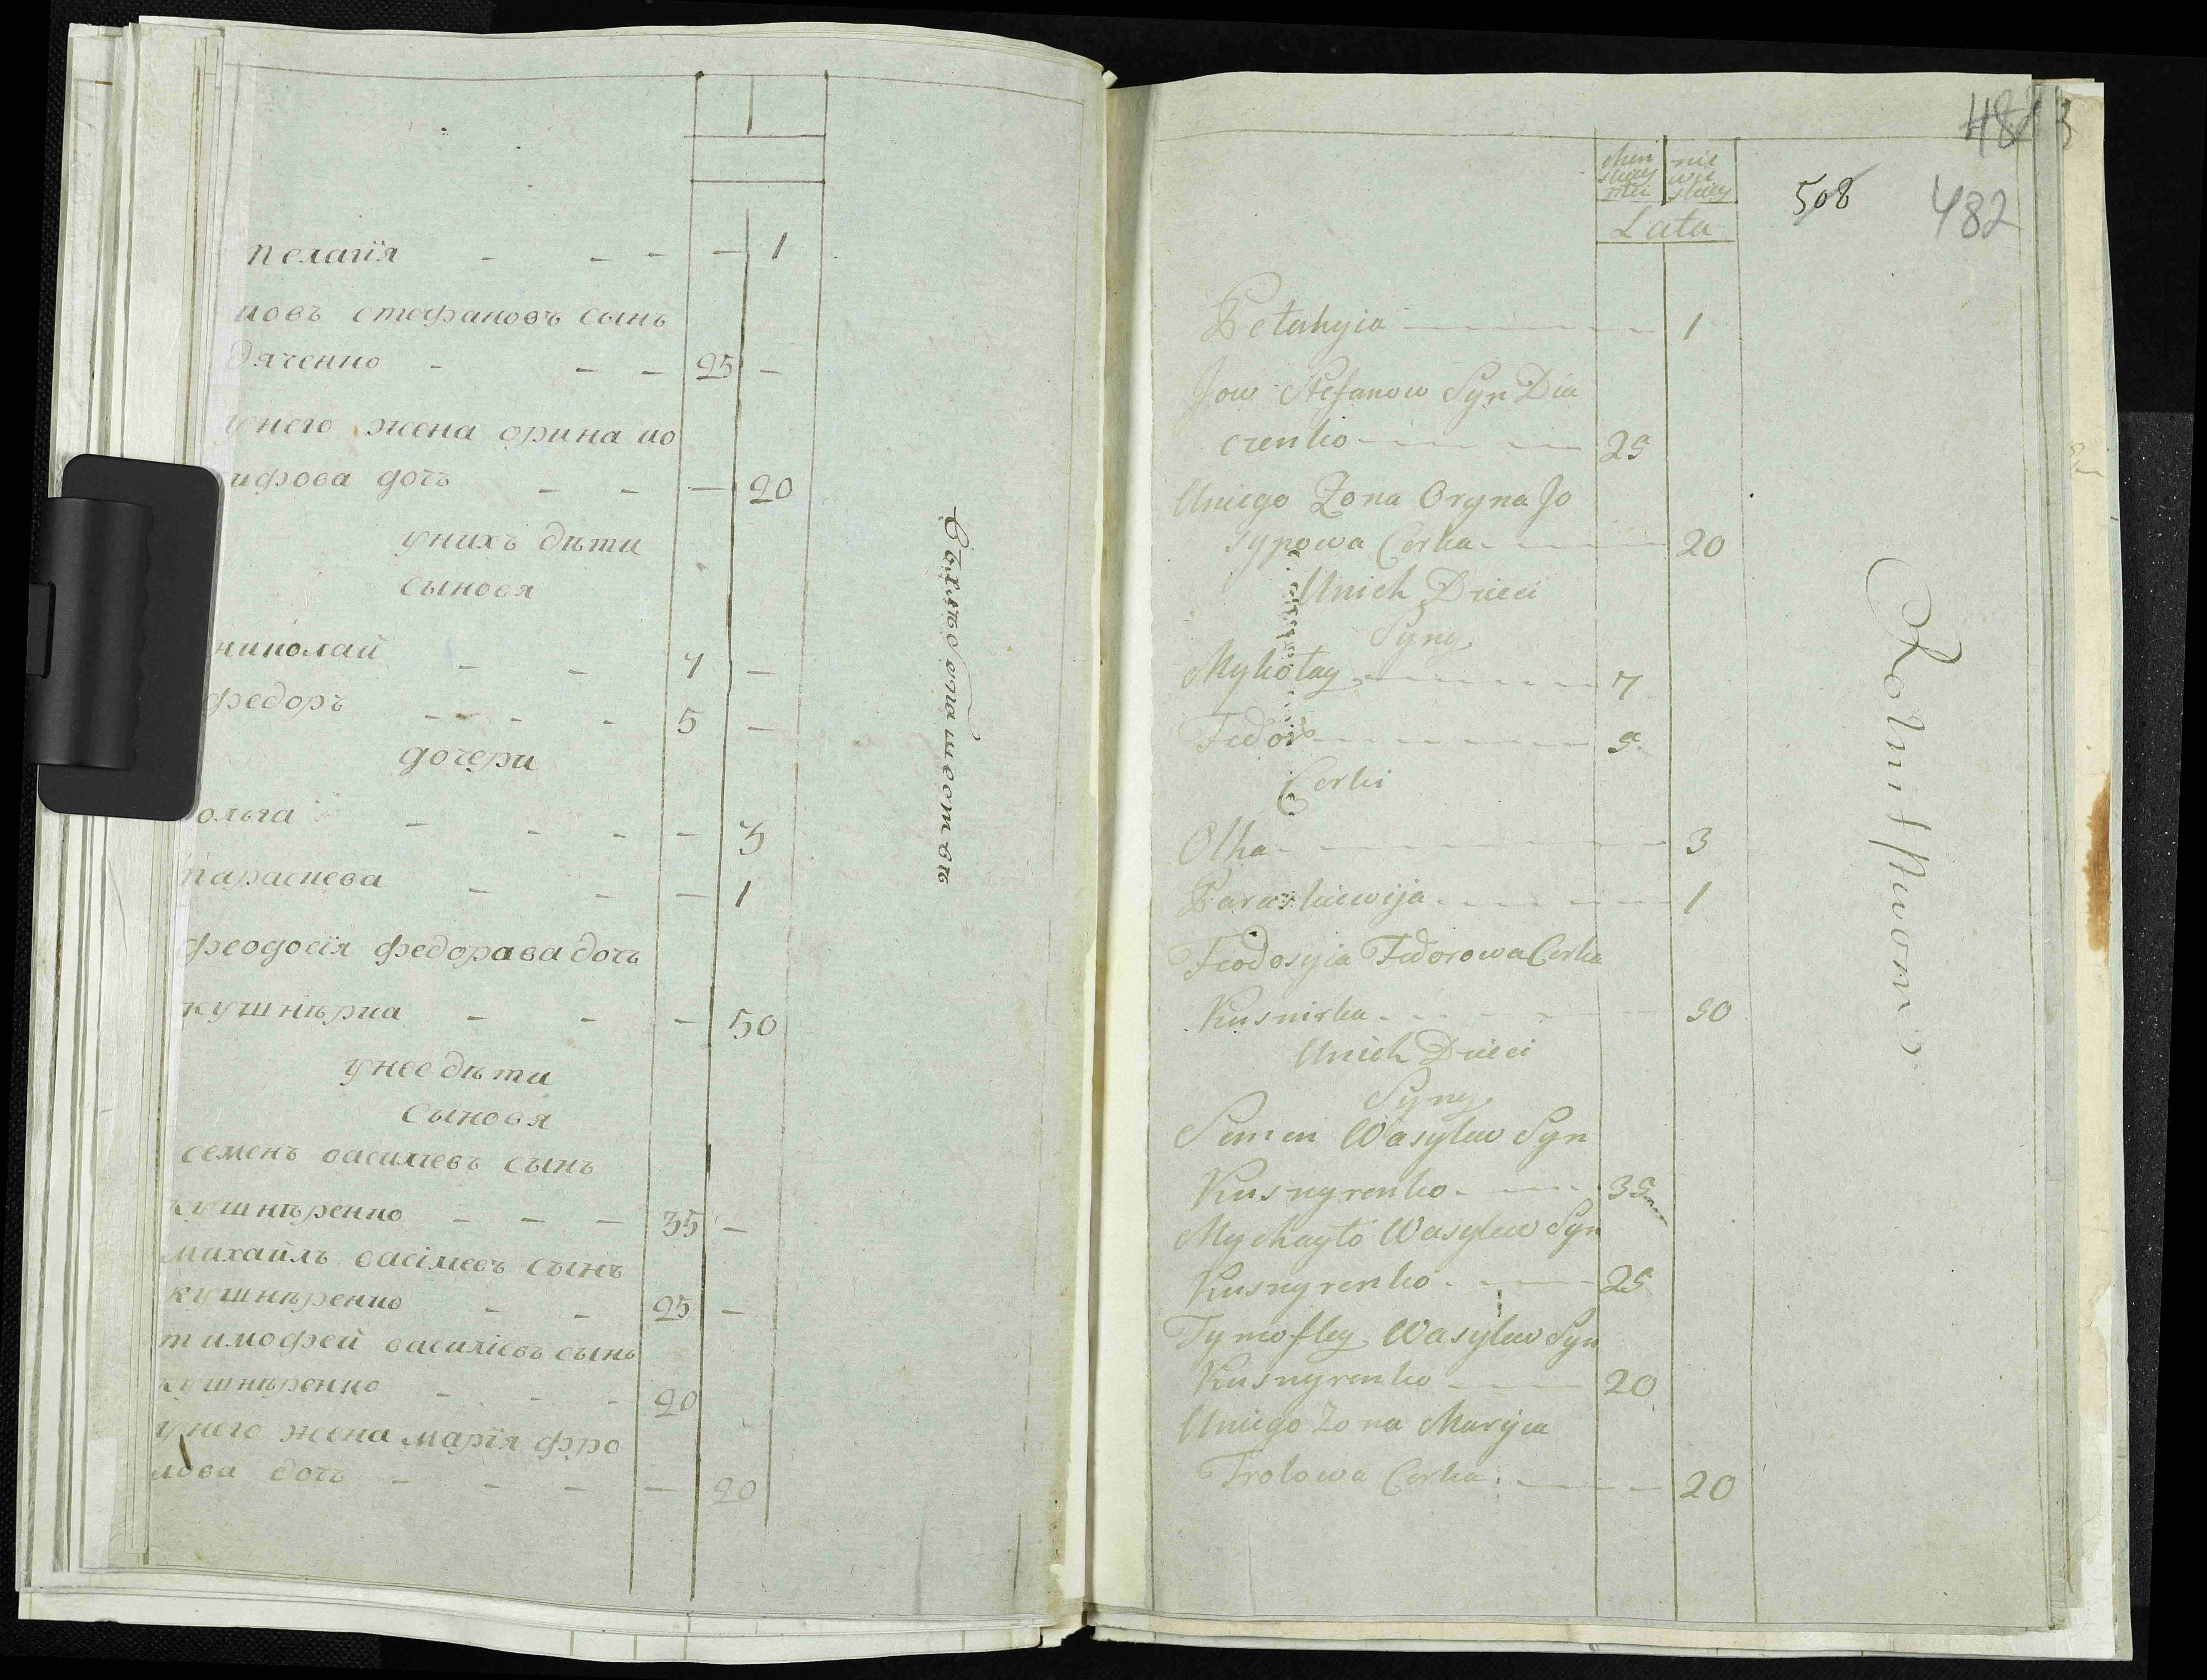 пелагїя - - - — 1
иовъ стефановъ сынъ
дяченко - - - 25 -
унего жена орина ио
ифова дочъ - - — 20
унихъ дѣти
сыновя
николай - - 7 -
федоръ - - - 5 -
дочери
ольга - - - - 3
параскева - - - 1
феодосїя федорава дочь
кушнѣрка - - - 50
унее дѣти
сыновя
семенъ василїевъ сынъ
кушнѣренко - - - 35 -
михайлъ васїлїевъ сынъ
кушнѣренко - - 25 -
тимофей василїевъ сынъ
кушнѣренко - - - 20
унего жена марїя фро
лова дочъ - - - — 20
482
508
482
nie
Lata
Petahyia 1
Jow Stefanow Syn Dia
czenko 25
Uniego Zona Oryna Jo
sypowa Corka 20
Unich Dzieci
Syny
Mykołay 7
Fedor 5
Corki
Olha 3
Paraskiewija 1
Feodosyia Fedorowa Corka
Kusnirka 50
Unich Dzieci
Syny
Semen Wasylew Syn
Kusnyrenko 35
Mychayło Wasylew Syn
Kusnyrenko 25
Tymofley Wasylew Syn
Kusnyrenko 20
Uniego Zona Maryia
Frolowa Corka 20